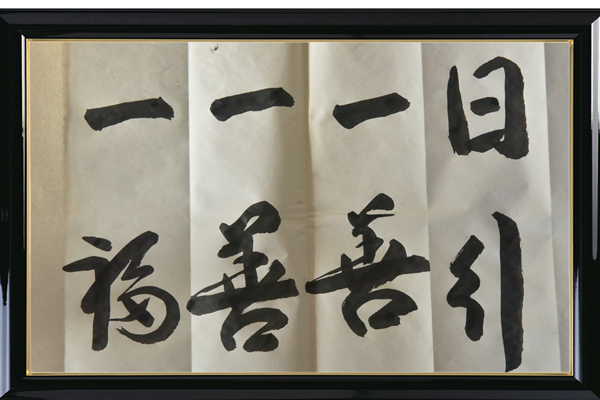 日行
一善
一善
一福